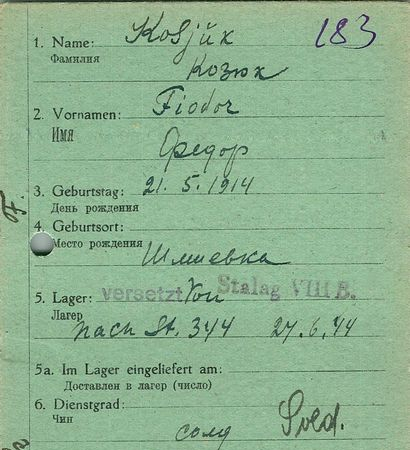 183
1. Name: Kosjúk
Фамилия Козюк
2. Vornamen: Fiodor
Имя Федор
3. Geburtstag: 21. 5. 1914
День рождения
F.
4. Geburtsort:
Место рождения
5. Lager: versetzt Von Stalag VIII B.
Лагер
nach St. 344 27.6.44
5a. Im Lager eingeliefert am:
Доставлен в лагер (число)
6. Dienstgrad: Sold.
Чин солд